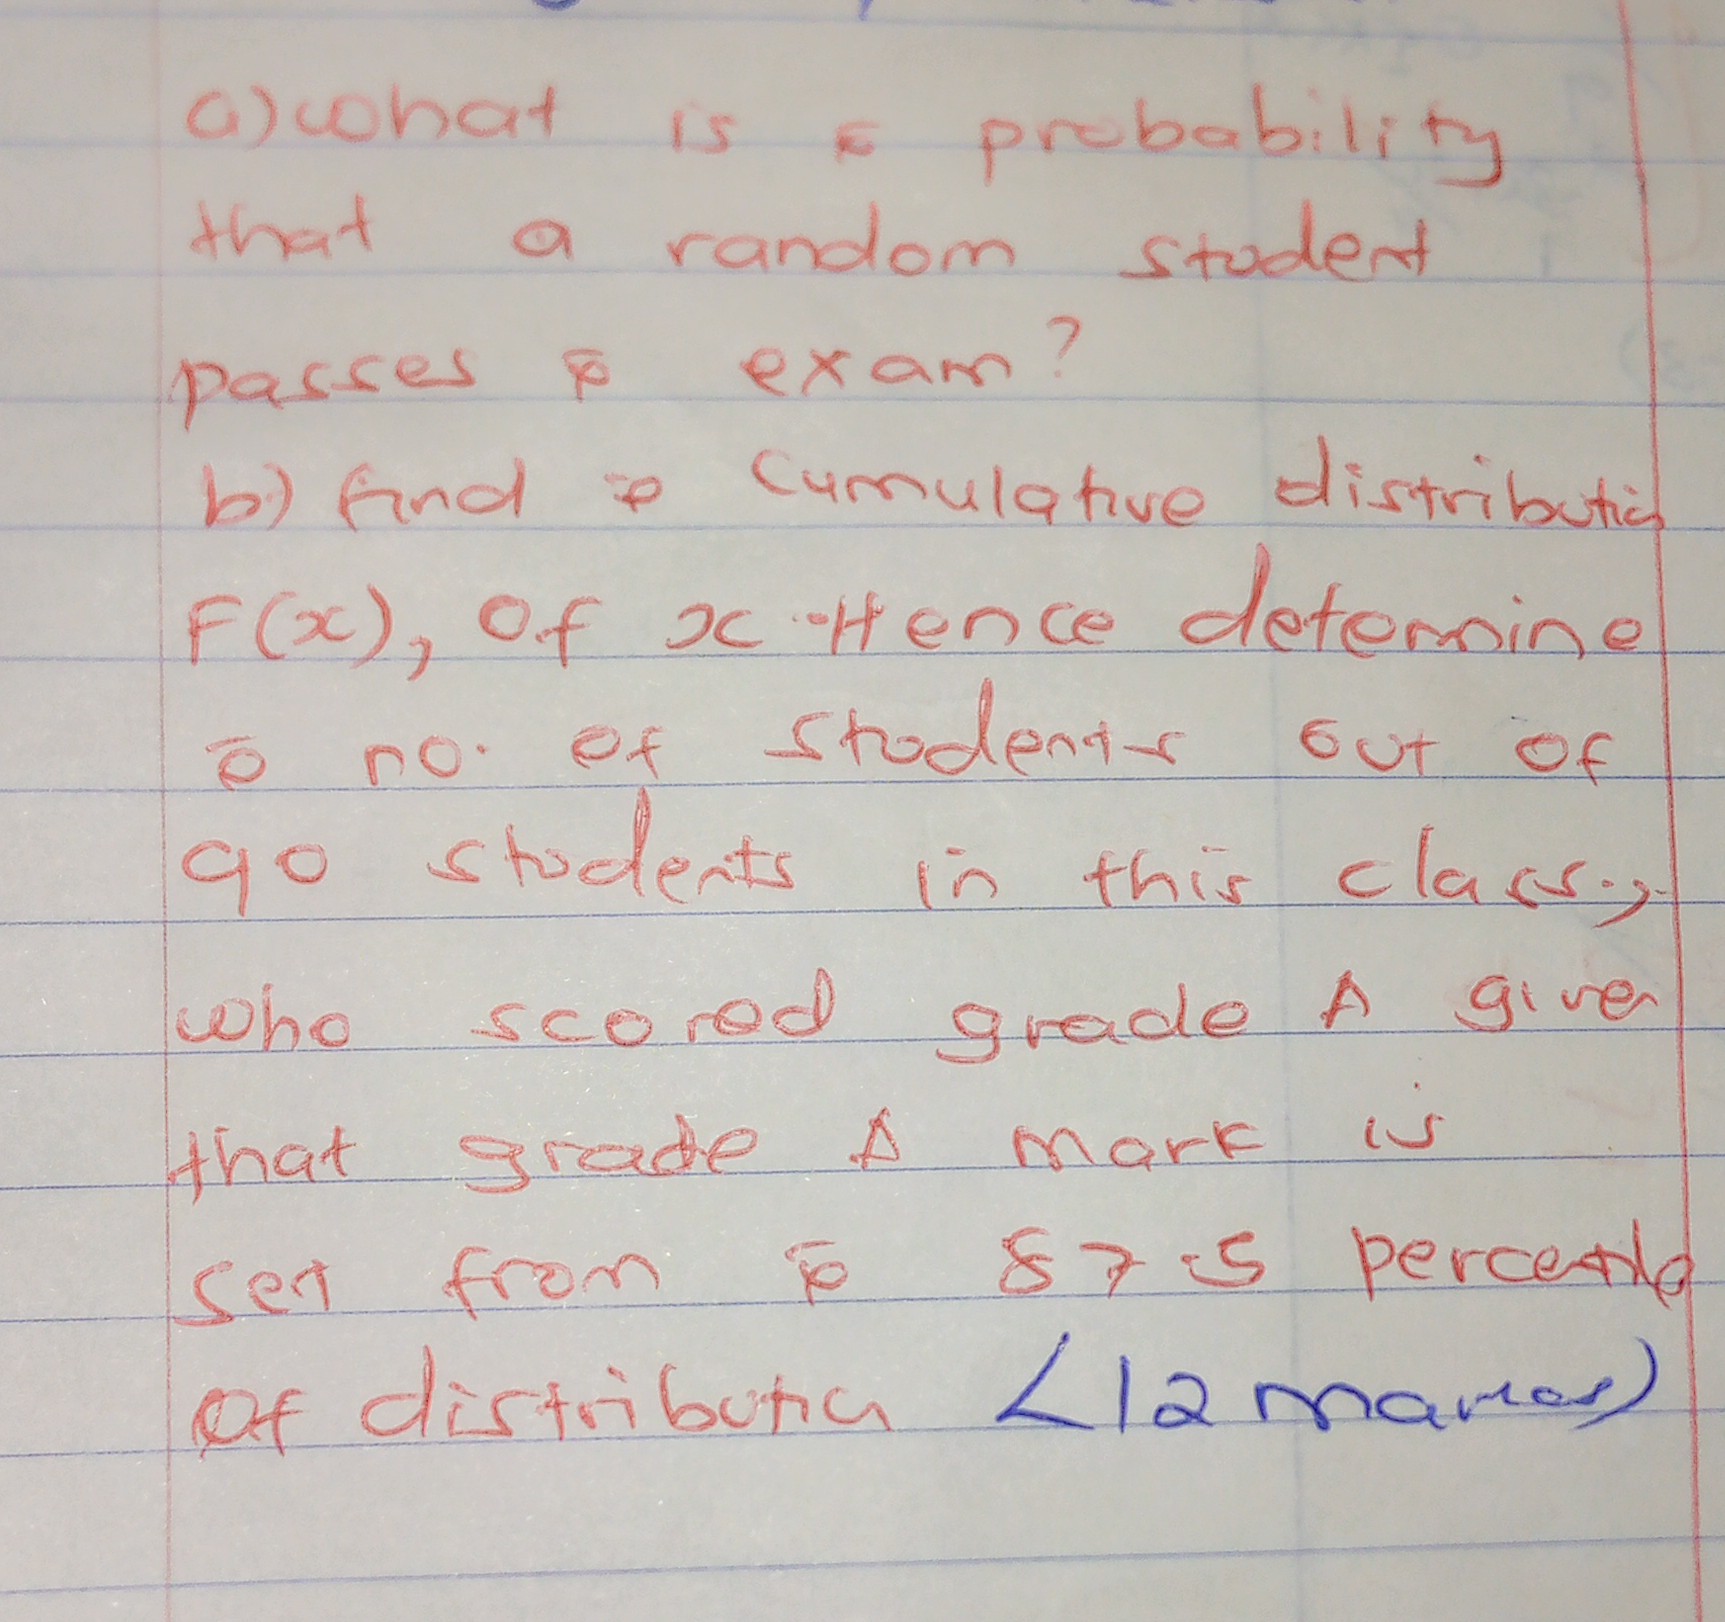 a) what is probability
that a random student
passes exam?
b) find cumulative distribution
F(x), of x. Hence determine
no. of students out of
90 students in this class,
who scored grade A given
that grade A mark is
set from 87.5 percentile
of distribution (12 marks)